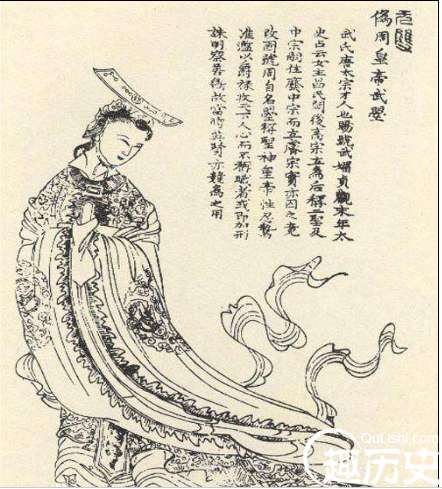 偽周皇帝武曌
武氏唐太宗才人也賜號武媚貞觀末年太
史占云女主昌民間後高宗立為后稱二聖及
中宗嗣位廢中宗而立睿宗實亦囚之竟
改國號周自名曌稱聖神皇帝性忍鷙
准濫以爵祿收天下人心而不稱職者或即加刑
誅明察善斷故當時英賢亦競為之用
QuLishi.com
趣历史